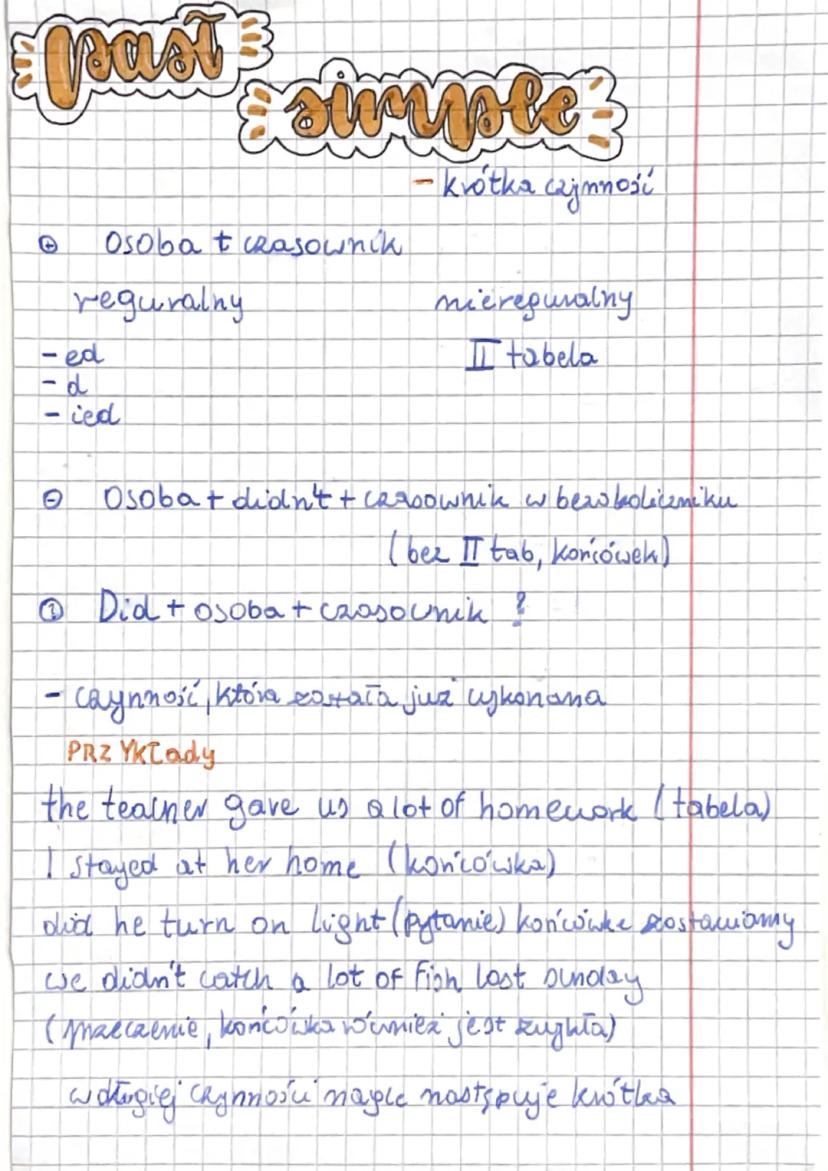 past
simple
- krótka czynność
⊕ osoba + czasownik
reguralny nieregularny
- ed II tabela
- d
- ied
⊖ osoba + didn't + czasownik w bezokoliczniku
(bez II tab, końcówek)
? Did + osoba + czasownik ?
- czynność, która została już wykonana
PRZYKŁady
the teacher gave us a lot of homework (tabela)
I stayed at her home (końcówka)
did he turn on light (pytanie) końcówkę zostawiamy
we didn't catch a lot of fish last sunday
(przeczenie, końcówka również jest zwykła)
w długiej czynności nagle następuje krótka